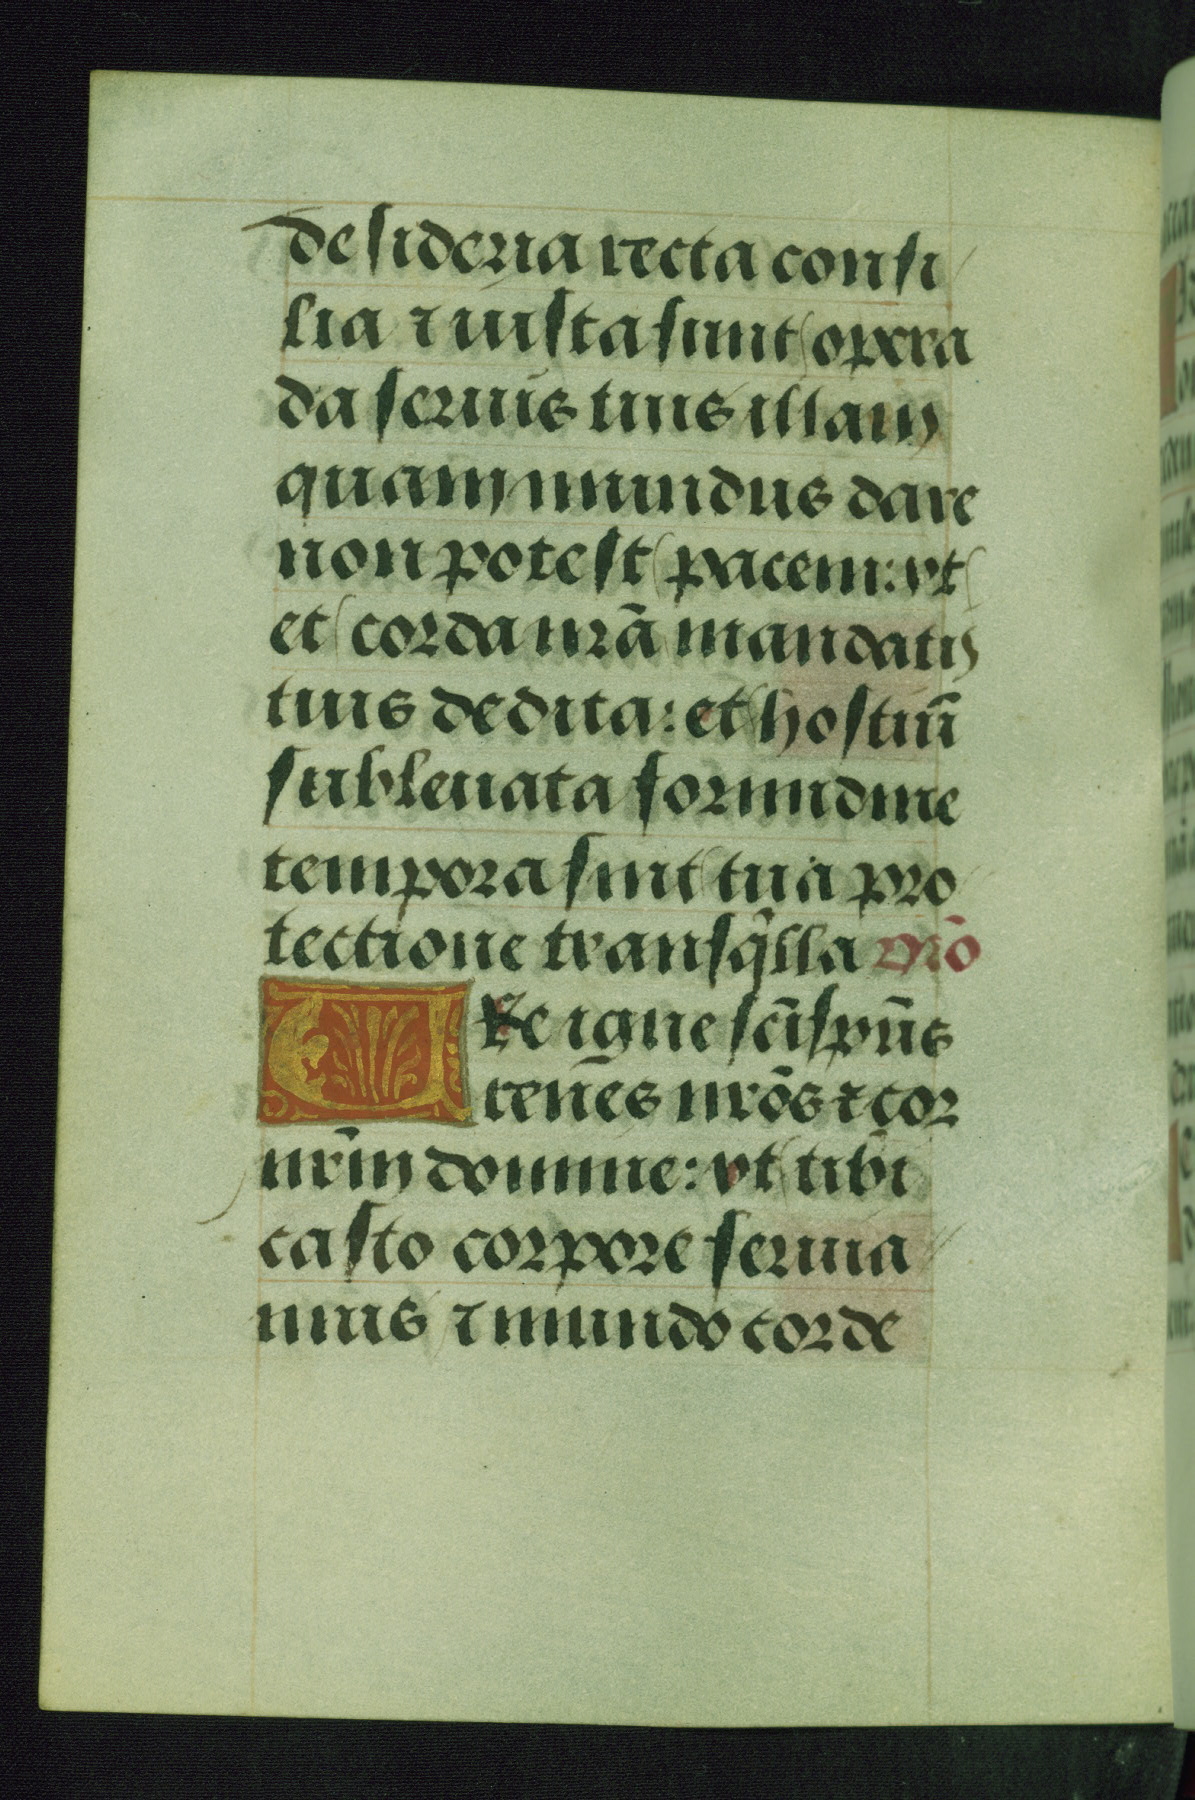 desideria recta consi
lia ⁊ iusta sunt opera
da seruis tuis illam
quam mundus dare
non potest pacem: vt
et corda nr̄a mandatis
tuis dedita: et hostiū
subleuata formidine
tempora sint tua pro
tectione tranſq̇lla orō
VRe igne scī spūs
renēs nrōs ⁊ cor
nrm̄ domine: vt tibi
casto corpore seruia
mus ⁊ mundo corde